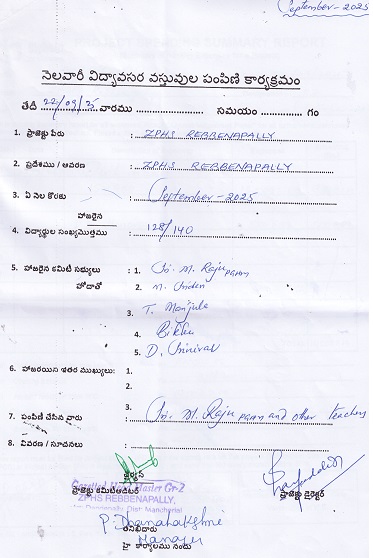 September-2025
నెలవారీ విద్యావసర వస్తువుల పంపిణి కార్యక్రమం
తేదీ 22/09/25 వారము .................... సమయం .............. గం
1. ప్రాజెక్టు పేరు : ZPHS REBBENAPALLY
2. ప్రదేశము / ఆవరణ : ZPHS REBBENAPALLY
3. ఏ నెల కొరకు : September-2025
హాజరైన
4. విద్యార్థుల సంఖ్య/మొత్తము : 128/140
5. హాజరైన కమిటి సభ్యులు : 1. Sri. M. Raju
హోదాతో 2.
3. T. Manjula
4.
5. D. Srinivas
6. హాజరయిన ఇతర ముఖ్యులు: 1.
2.
3.
7. పంపిణి చేసిన వ్యారు : Sri. M. Raju and other teachers
8. వివరణ / సూచనలు :
Gazetted Head Master Gr-2
ప్రాజెక్టు కమిటి ప్రాజెక్టు డైరెక్టర్
ZPHS REBBENAPALLY,
Dist: Mancherial
P. Dhanalakshmi
Manager
హై కార్యాలము నందు